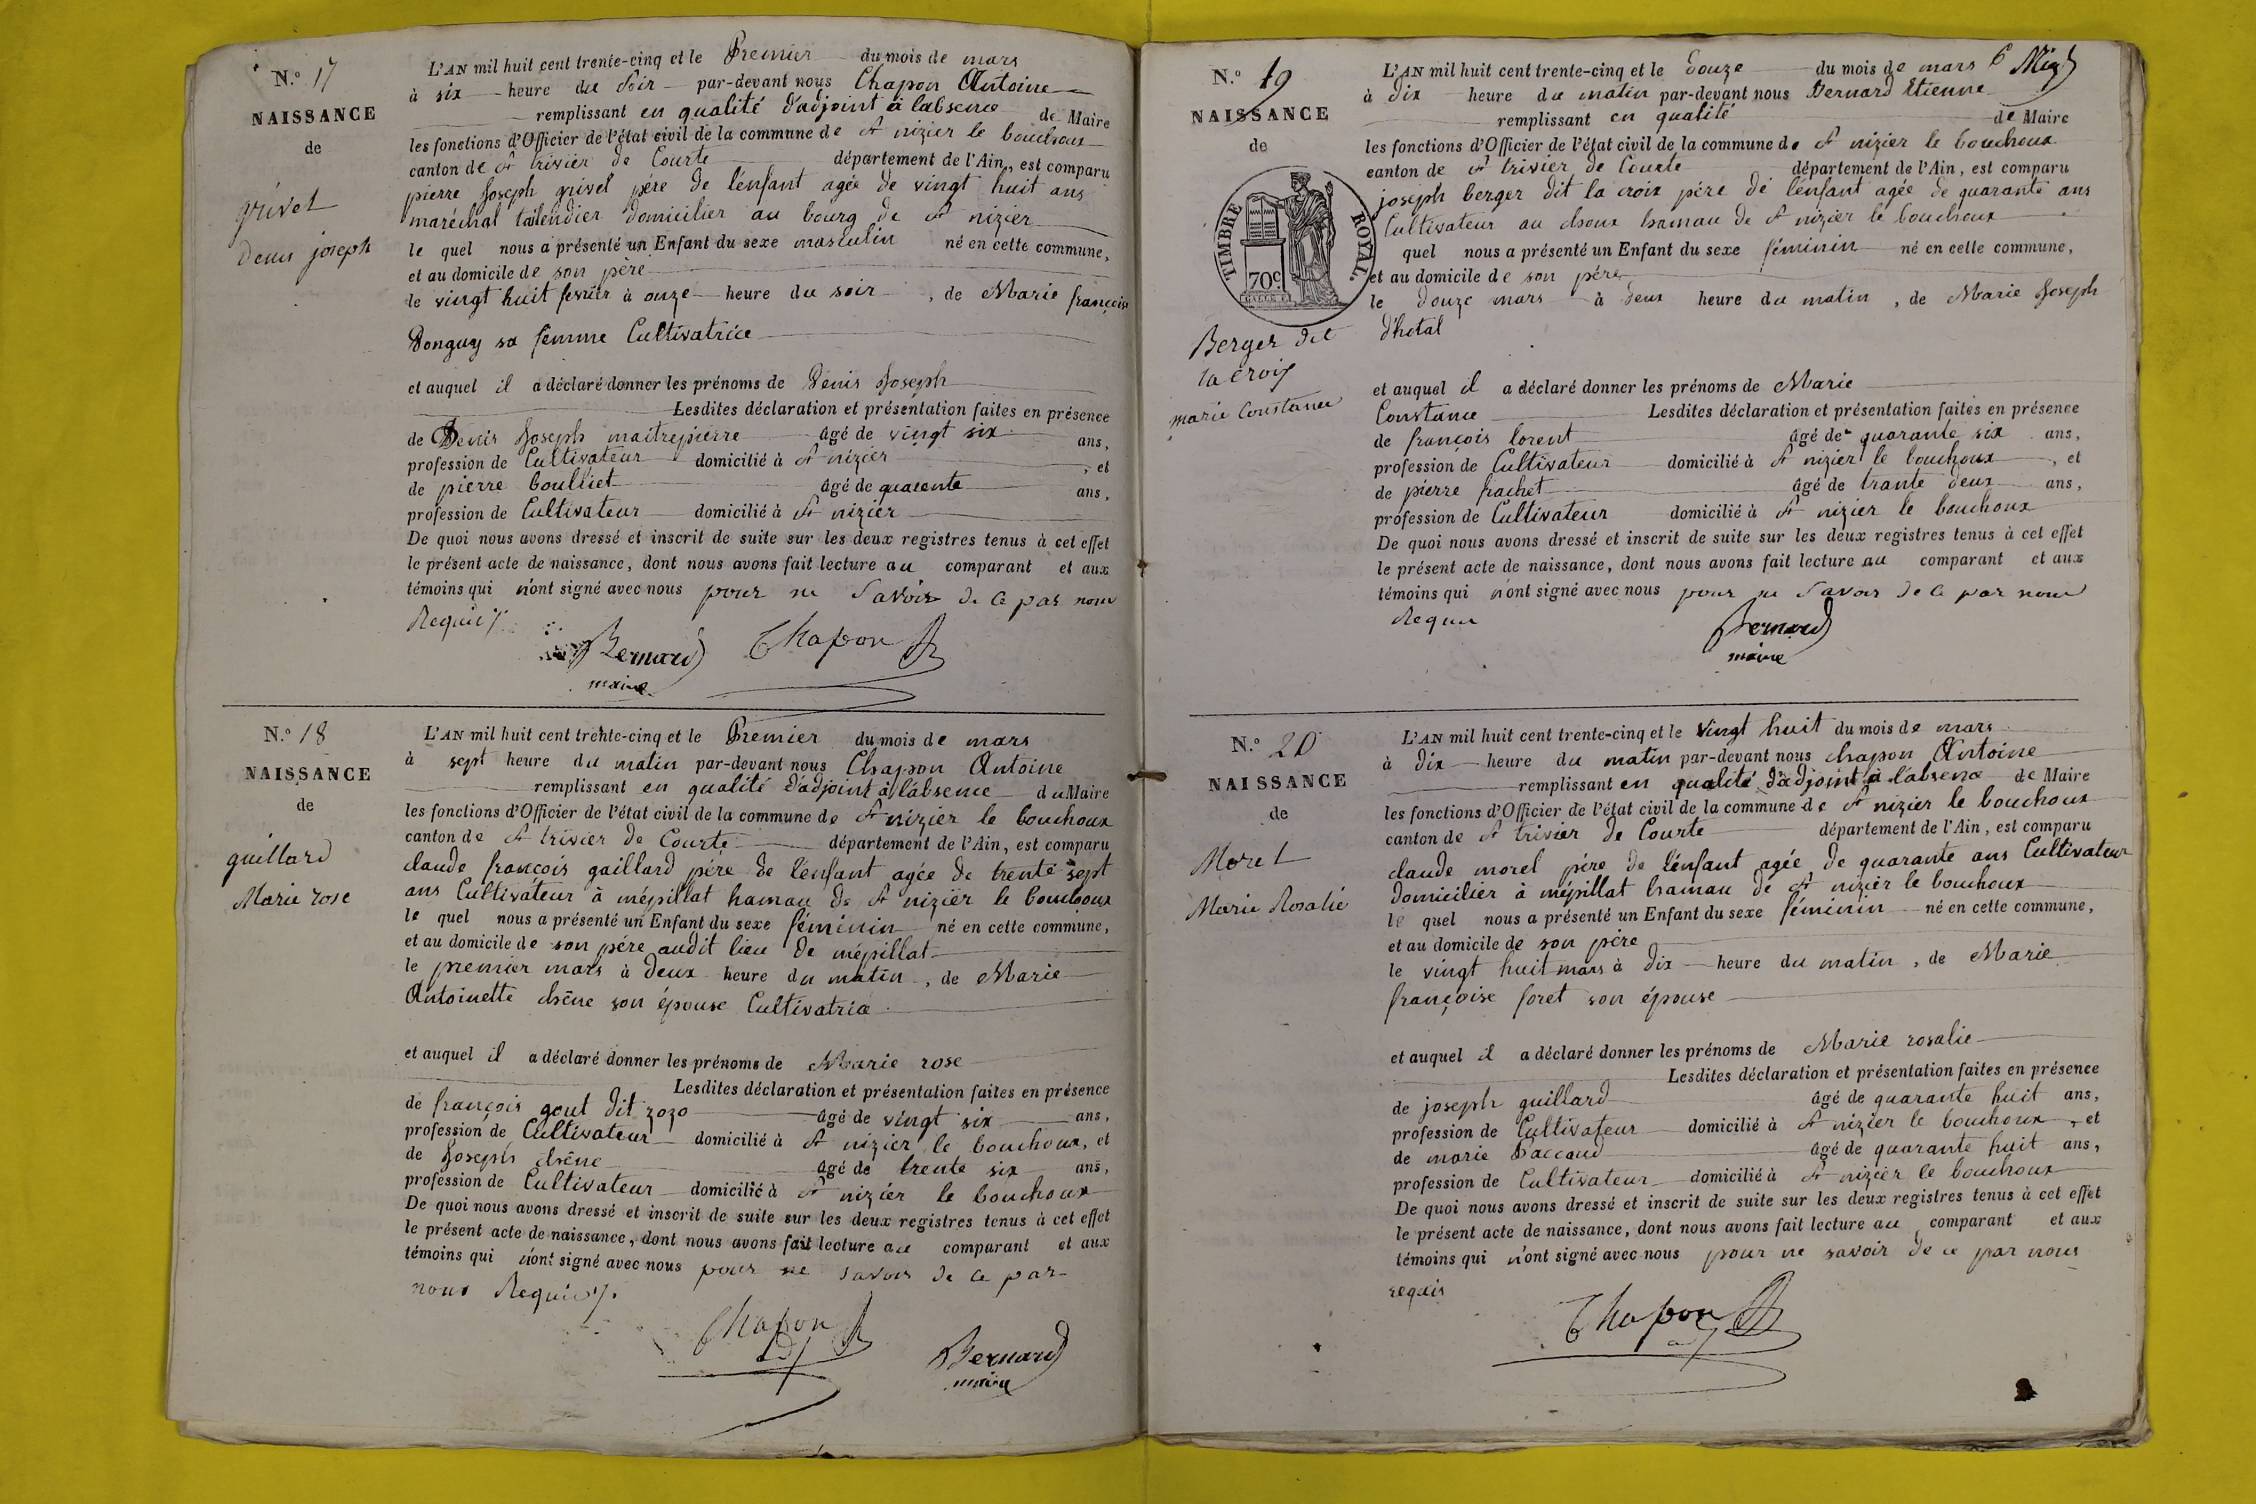 N.° 17
NAISSANCE
de
grivel
Denis joseph
L'AN mil huit cent trente-cinq et le Premier du mois de mars
à six heure du soir par-devant nous Chapon Antoine
remplissant en qualité d'adjoint à l'absence de Maire
les fonctions d'Officier de l'état civil de la commune de St nizier le bouchoux
canton de St trivier de Courte département de l'Ain, est comparu
pierre Joseph grivel pére de l'enfant agée de vingt huit ans
maréchal tailendier domicilier au bourg de St nizier
le quel nous a présenté un Enfant du sexe masculin né en cette commune,
et au domicile de son père
le vingt huit fevrier à onze heure du soir, de Marie françoise
Donguy sa femme Cultivatrice
et auquel il a déclaré donner les prénoms de Denis Joseph
Lesdites déclaration et présentation faites en présence
de Denis Joseph maitrepierre âgé de vingt six ans,
profession de Cultivateur domicilié à St nizier, et
de pierre boulliet âgé de quarente ans,
profession de Cultivateur domicilié à St nizier
De quoi nous avons dressé et inscrit de suite sur les deux registres tenus à cet effet
le présent acte de naissance, dont nous avons fait lecture au comparant et aux
témoins qui n'ont signé avec nous pour ne savoir de ce par nous
Requis
Bernard Chapon
maire
N.° 18
NAISSANCE
de
guillard
Marie rose
L'AN mil huit cent trente-cinq et le Premier du mois de mars
à sept heure du matin par-devant nous Chapon Antoine
remplissant en qualité d'adjoint à l'absence du Maire
les fonctions d'Officier de l'état civil de la commune de St nizier le bouchoux
canton de St trivier de Courte département de l'Ain, est comparu
claude françois gaillard pére de l'enfant agée de trente sept
ans Cultivateur à mépillat hamau de St nizier le bouchoux
le quel nous a présenté un Enfant du sexe féminin né en cette commune,
et au domicile de son pére audit lieu de mépillat
le premier mars à deux heure du matin, de Marie
Antoinette chêne son épouse Cultivatrice
et auquel il a déclaré donner les prénoms de Marie rose
Lesdites déclaration et présentation faites en présence
de françois gout dit zozo âgé de vingt six ans,
profession de Cultivateur domicilié à St nizier le bouchoux, et
de Joseph chêne âgé de trente six ans,
profession de Cultivateur domicilié à St nizier le bouchoux
De quoi nous avons dressé et inscrit de suite sur les deux registres tenus à cet effet
le présent acte de naissance, dont nous avons fait lecture au comparant et aux
témoins qui n'ont signé avec nous pour ne savoir de ce par
nous Requis
Chapon
adj
Bernard
maire
N.° 19
NAISSANCE
de
TIMBRE ROYAL.
70c
Berger dit
la croix
marie Constance
L'AN mil huit cent trente-cinq et le douze du mois de mars
à dix heure du matin par-devant nous Bernard Etienne
remplissant en qualité de Maire
les fonctions d'Officier de l'état civil de la commune de St nizier le bouchoux
canton de St trivier de Courte département de l'Ain, est comparu
joseph berger dit la croix pére de l'enfant agée de quarante ans
Cultivateur au choux hamau de St nizier le bouchoux
quel nous a présenté un Enfant du sexe féminin né en cette commune,
et au domicile de son pére
le douze mars à deux heure du matin, de Marie Joseph
d'hotal
et auquel il a déclaré donner les prénoms de Marie
Constance Lesdites déclaration et présentation faites en présence
de françois lorent âgé de quarante six ans,
profession de Cultivateur domicilié à St nizier le bouchoux, et
de pierre frachet âgé de trante deux ans,
profession de Cultivateur domicilié à St nizier le bouchoux
De quoi nous avons dressé et inscrit de suite sur les deux registres tenus à cet effet
le présent acte de naissance, dont nous avons fait lecture au comparant et aux
témoins qui n'ont signé avec nous pour ne savoir de ce par nous
Requis
Bernard
maire
N.° 20
NAISSANCE
de
Morel
Marie Rosalie
L'AN mil huit cent trente-cinq et le vingt huit du mois de mars
à dix heure du matin par-devant nous chapon Antoine
remplissant en qualité d'adjoint à l'absence de Maire
les fonctions d'Officier de l'état civil de la commune de St nizier le bouchoux
canton de St trivier de Courte département de l'Ain, est comparu
claude morel pére de l'enfant agée de quarante ans Cultivateur
domicilier à mépillat hamau de St nizier le bouchoux
le quel nous a présenté un Enfant du sexe féminin né en cette commune,
et au domicile de son pére
le vingt huit mars à dix heure du matin, de Marie
françoise foret son épouse
et auquel il a déclaré donner les prénoms de Marie rosalie
Lesdites déclaration et présentation faites en présence
de joseph guillard âgé de quarante huit ans,
profession de Cultivateur domicilié à St nizier le bouchoux, et
de marie baccaud âgé de quarante huit ans,
profession de Cultivateur domicilié à St nizier le bouchoux
De quoi nous avons dressé et inscrit de suite sur les deux registres tenus à cet effet
le présent acte de naissance, dont nous avons fait lecture au comparant et aux
témoins qui n'ont signé avec nous pour ne savoir de ce par nous
requis
Chapon